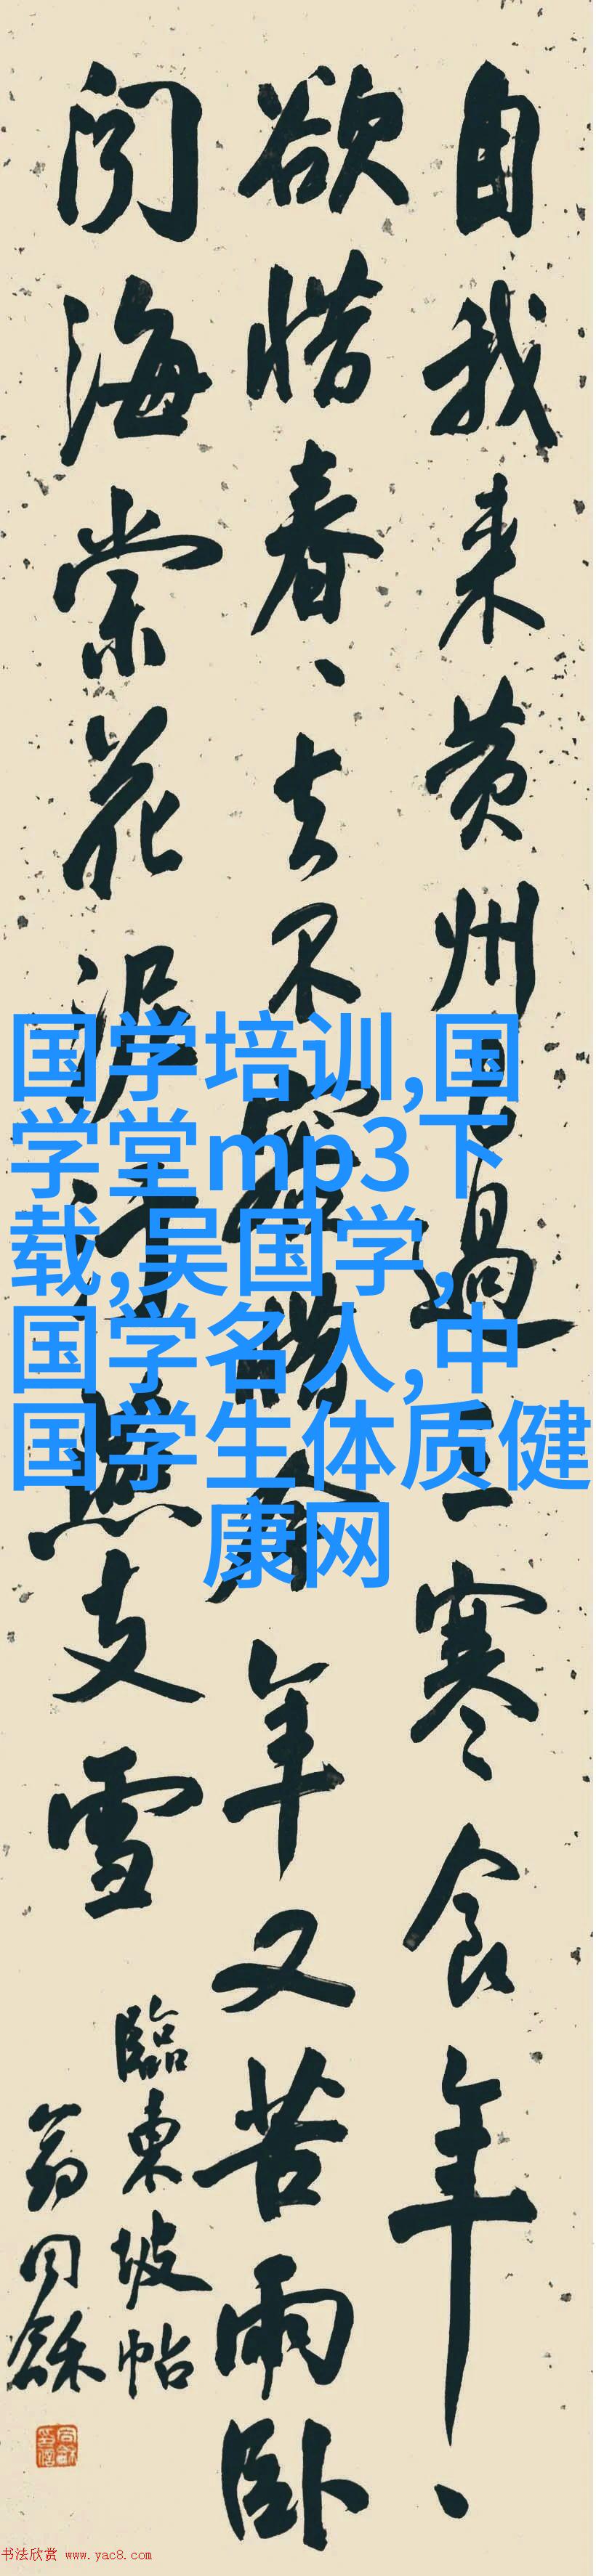 自我来黄州已過三寒食年、
欲惜春、去不容惜今年又苦雨卧
闻海棠花泥汙燕支雪
臨東坡帖
翁同龢
国学培训,国
学堂mp3下
载,吴国学,
国学名人,中
国学生体质健
康网
书法欣赏 www.yac8.com